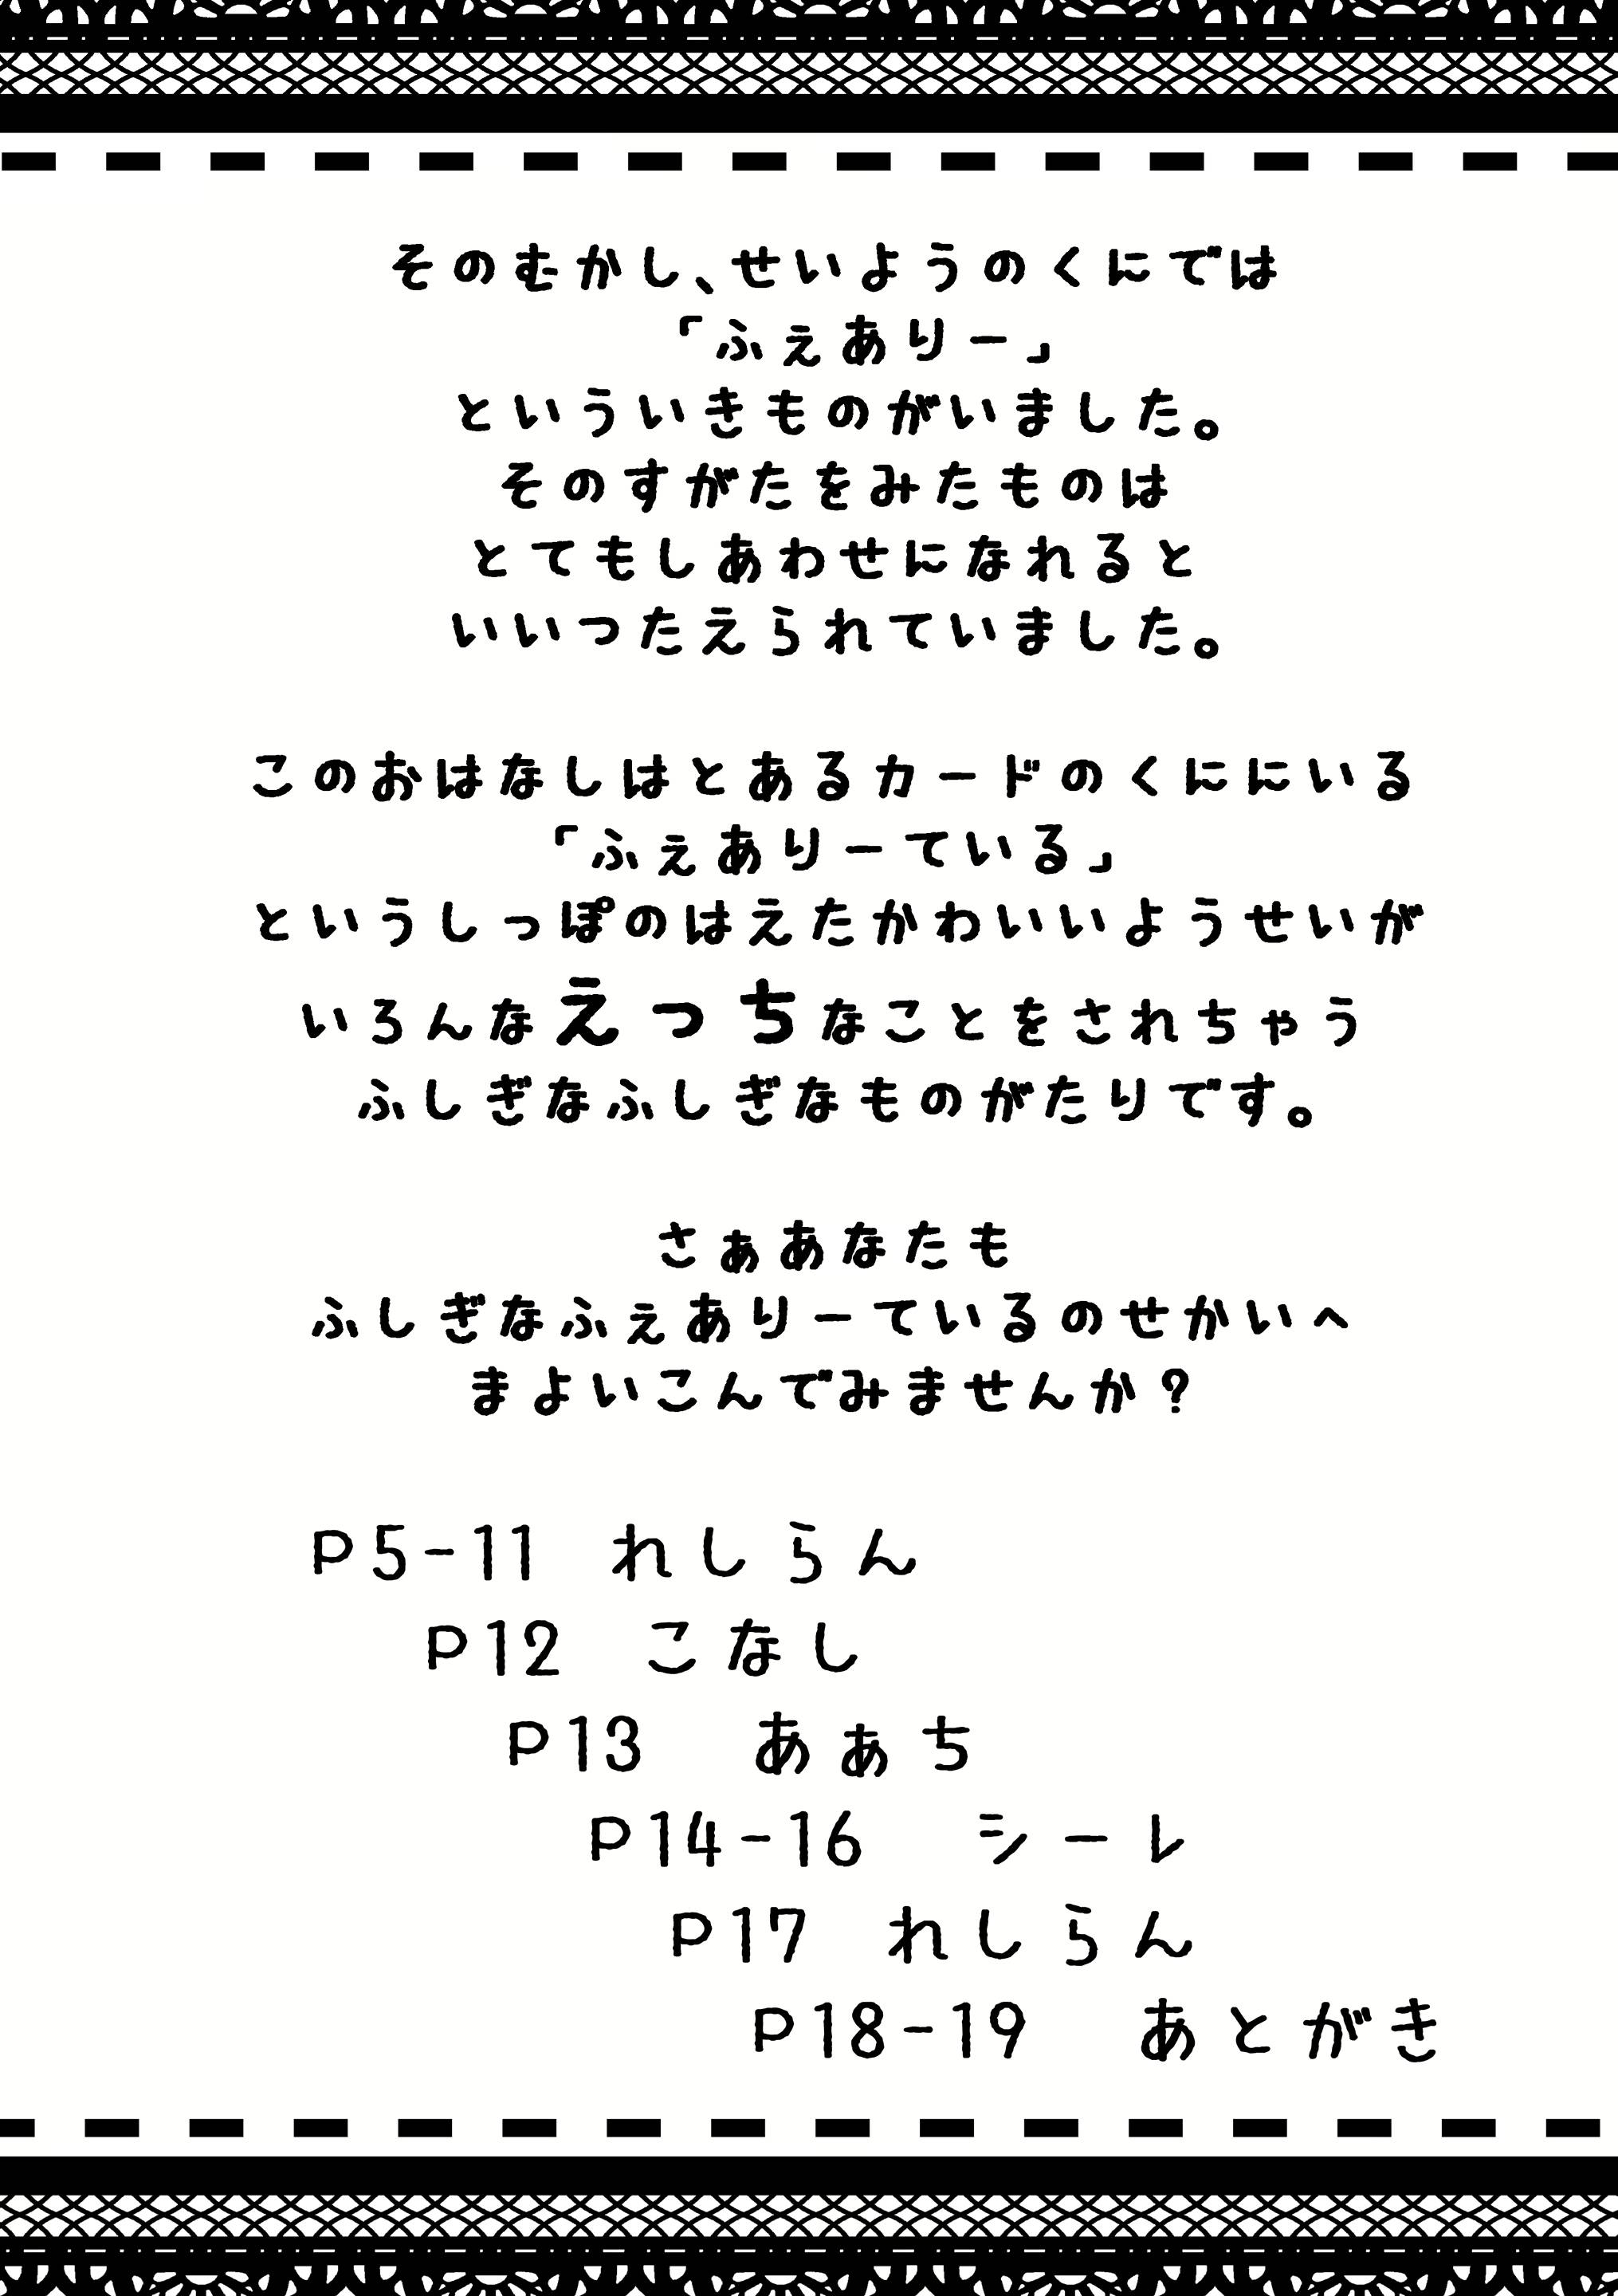 そのむかし、せいようのくにでは
「ふぇありー」
といういきものがいました。
そのすがたをみたものは
とてもしあわせになれると
いいつたえられていました。
このおはなしはとあるカードのくににいる
「ふぇありーている」
というしっぽのはえたかわいいようせいが
いろんなえっちなことをされちゃう
ふしぎなふしぎなものがたりです。
さぁあなたも
ふしぎなふぇありーているのせかいへ
まよいこんでみませんか?
P5-11 れしらん
P12 こなし
P13 あぁち
P14-16 シーレ
P17 れしらん
P18-19 あとがき